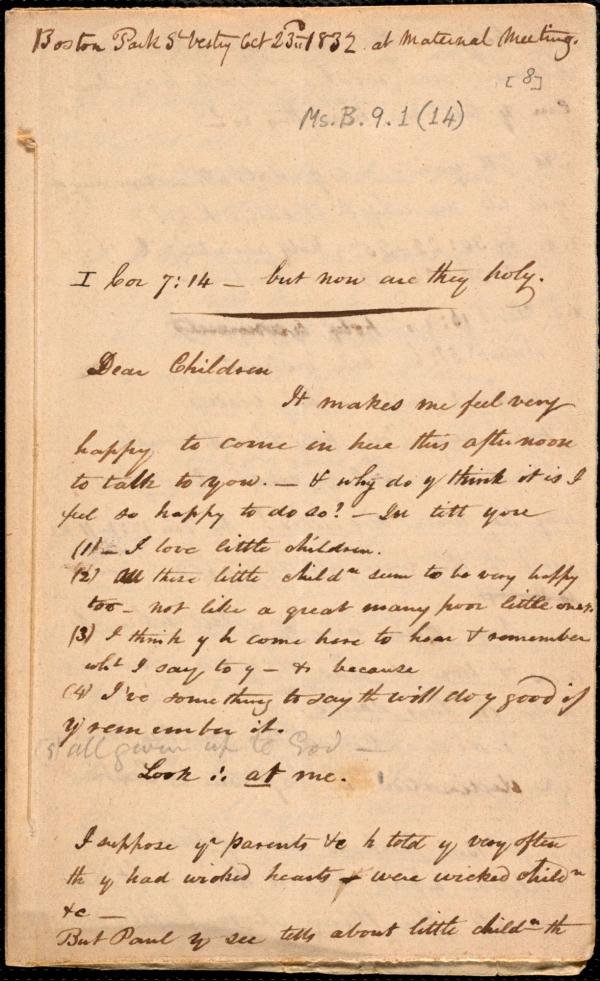 Boston Park St Vestry Oct 23rd 1832 at Maternal Meeting.
[8]
Ms. B. 9.1 (14)
I Cor 7:14 — but now are they holy.
Dear Children
It makes me feel very
happy to come in here this afternoon
to talk to you. — & why do y think it is I
feel so happy to do so? —
(1) — I love little children.
(2) All these little childn seem to be very happy
too — not like a great many poor little ones.
(3) I think y h come here to hear & remember
wht I say to y — & because
(4) I've something to say th will do y good if
y remember it.
(5) all given up to God —
Look :. at me.
I suppose yr parents &c h told y very often
th y had wicked hearts were wicked childn
&c —
But Paul y see tells about little childn th